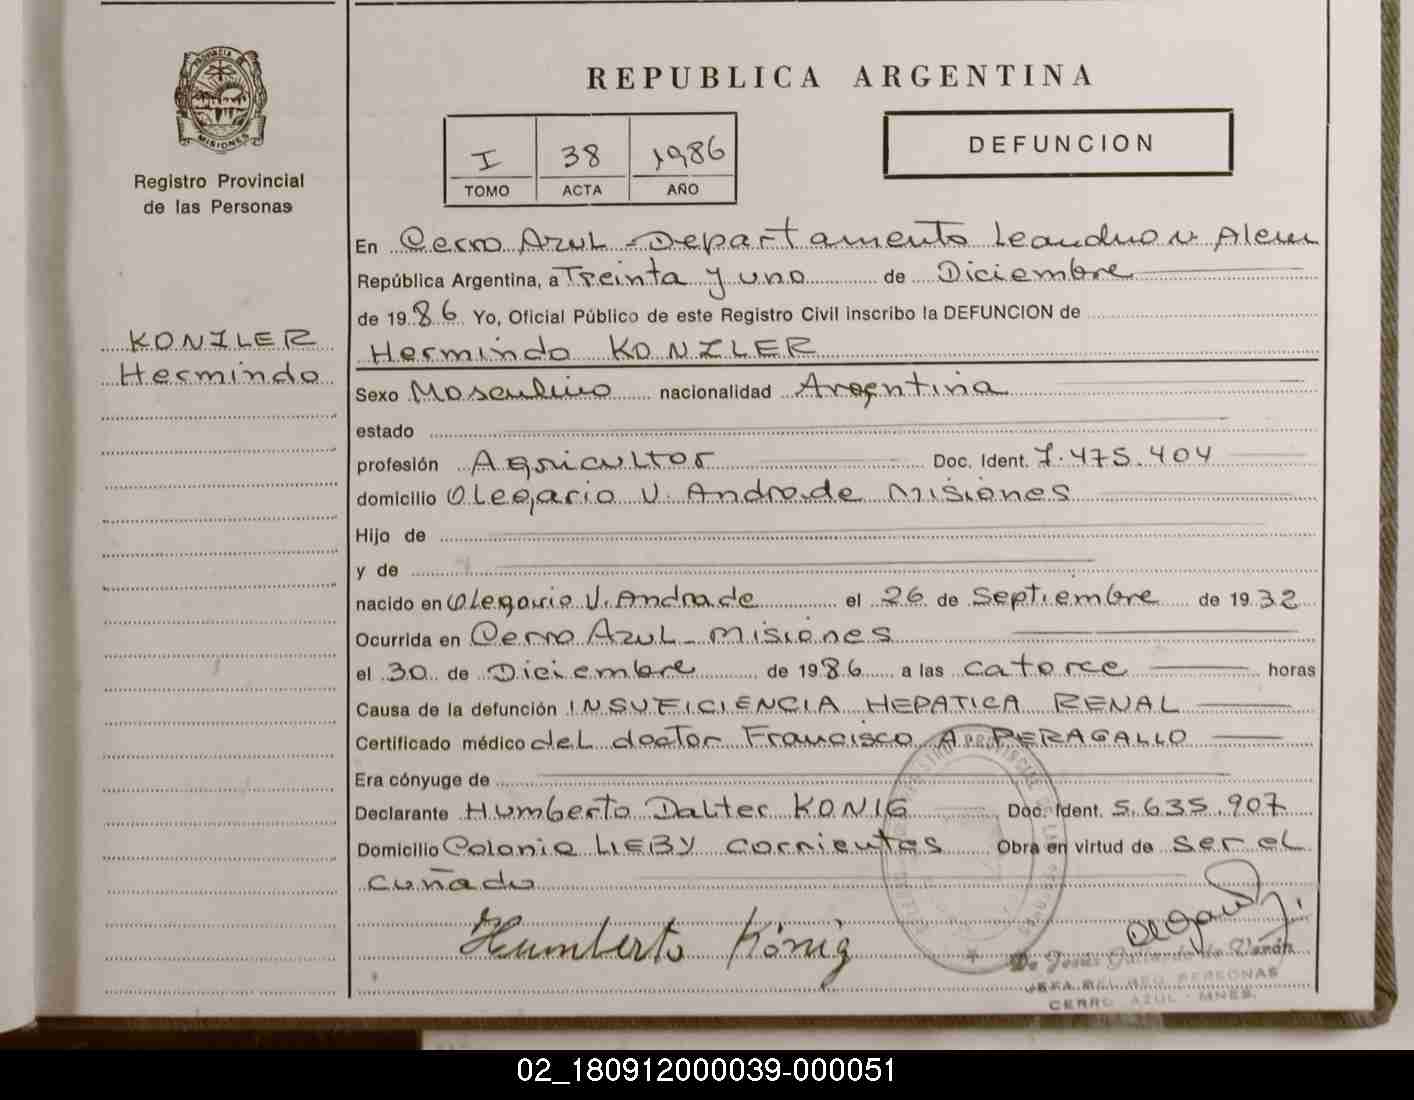 PROVINCIA DE
MISIONES
Registro Provincial
de las Personas
KONZLER
Hermindo
REPUBLICA ARGENTINA
I 38 1986
TOMO ACTA AÑO
DEFUNCION
En Cerro Azul - Departamento Leandro N. Alem
República Argentina, a Treinta y uno de Diciembre
de 1986 Yo, Oficial Público de este Registro Civil inscribo la DEFUNCION de
Hermindo KONZLER
Sexo Masculino nacionalidad Argentina
estado
profesión Agricultor Doc. Ident. 7.475.404
domicilio Olegario V. Andrade Misiones
Hijo de
y de
nacido en Olegario V. Andrade el 26 de Septiembre de 1932
Ocurrida en Cerro Azul - Misiones
el 30 de Diciembre de 1986 a las catorce horas
Causa de la defunción INSUFICIENCIA HEPATICA RENAL
Certificado médico del doctor Francisco A PERAGALLO
Era cónyuge de
Declarante Humberto Dalter KONIG Doc. Ident. 5.635.907
Domicilio Colonia LIEBY Corrientes Obra en virtud de ser el
cuñado
Humberto König
JEFA DEL REG. PERSONAS
CERRO AZUL - MNES.
02_180912000039-000051